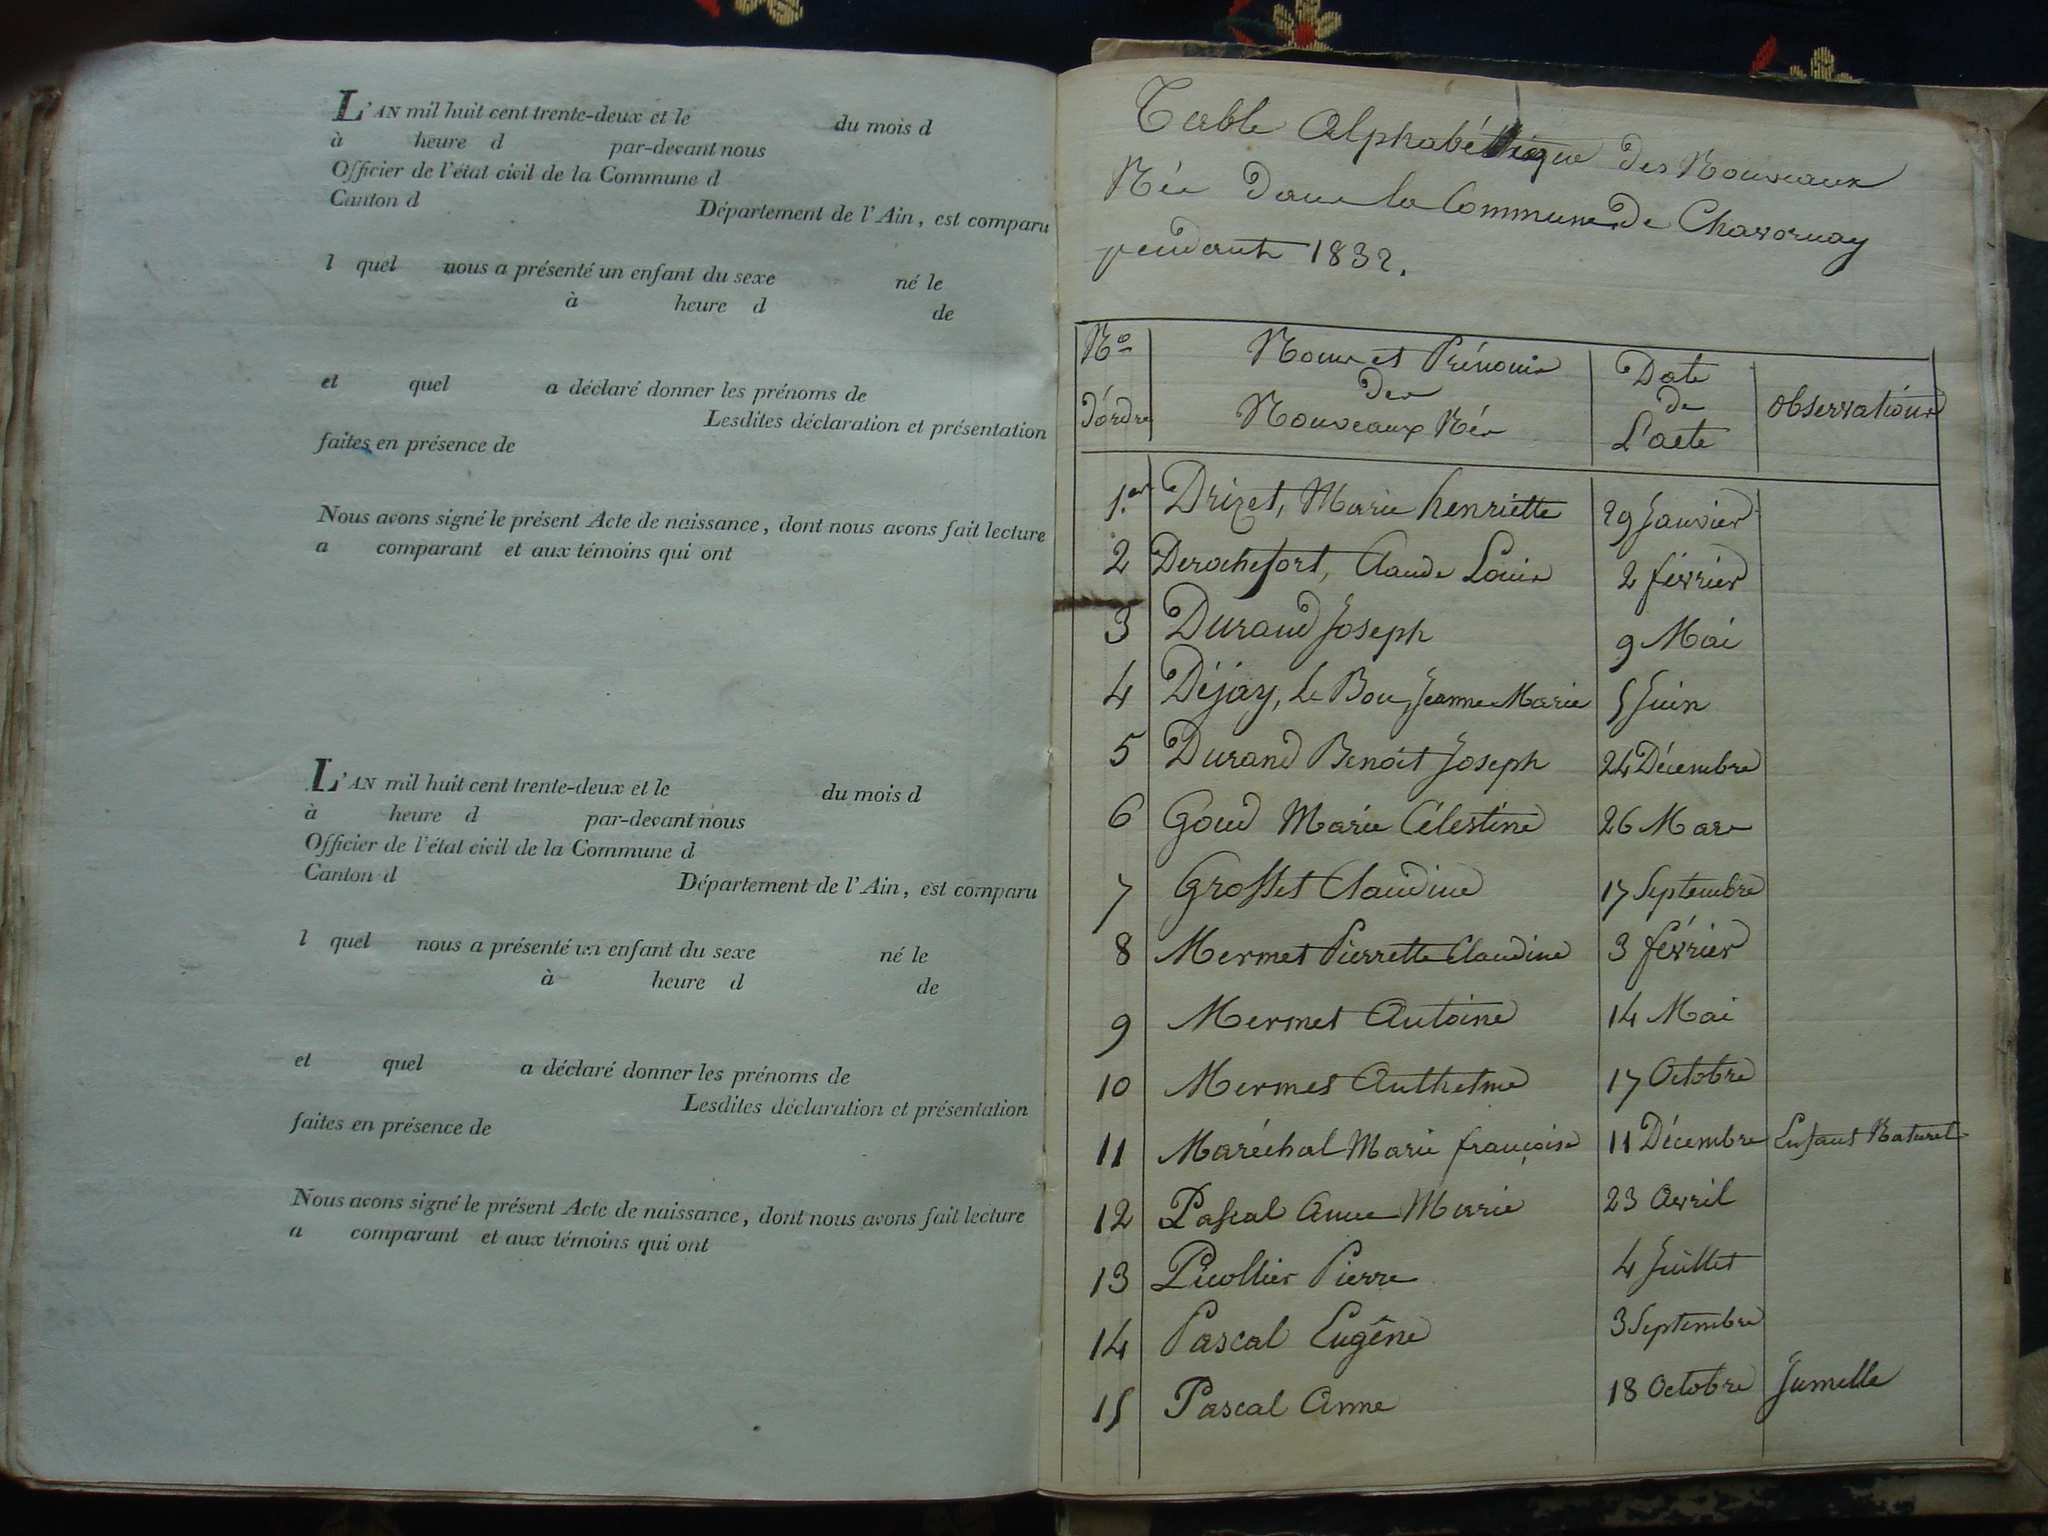 L'AN mil huit cent trente-deux et le du mois d
à heure d par-devant nous
Officier de l'état civil de la Commune d
Canton d Département de l'Ain, est comparu
l quel nous a présenté un enfant du sexe né le
à heure d de
et quel a déclaré donner les prénoms de
Lesdites déclaration et présentation
faites en présence de
Nous avons signé le présent Acte de naissance, dont nous avons fait lecture
a comparant et aux témoins qui ont
L'AN mil huit cent trente-deux et le du mois d
à heure d par-devant nous
Officier de l'état civil de la Commune d
Canton d Département de l'Ain, est comparu
l quel nous a présenté un enfant du sexe né le
à heure d de
et quel a déclaré donner les prénoms de
Lesdites déclaration et présentation
faites en présence de
Nous avons signé le présent Acte de naissance, dont nous avons fait lecture
a comparant et aux témoins qui ont
Table Alphabétique des Nouveaux
Nés dans la Commune de Chavornay
pendant 1832.
No d'ordre Noms et Prénoms des Nouveaux Nés Date de L'acte Observations
1.er Drizet, Marie henriette 29 Janvier
2 Derochefort, Claude Louis 2 février
3 Durand Joseph 9 Mai
4 Déjay, Le Bon, Jeanne Marie 5 Juin
5 Durand Benoit Joseph 24 Décembre
6 Goud Marie Célestine 26 Mars
7 Grosset Claudine 17 Septembre
8 Mermet Pierrette Claudine 3 février
9 Mermet Antoine 14 Mai
10 Mermet Anthelme 17 Octobre
11 Maréchal Marie françoise 11 Décembre Enfant Naturel
12 Pascal Anne Marie 23 Avril
13 Picollier Pierre 4 Juillet
14 Pascal Eugêne 3 Septembre
15 Pascal Anne 18 Octobre Jumelle